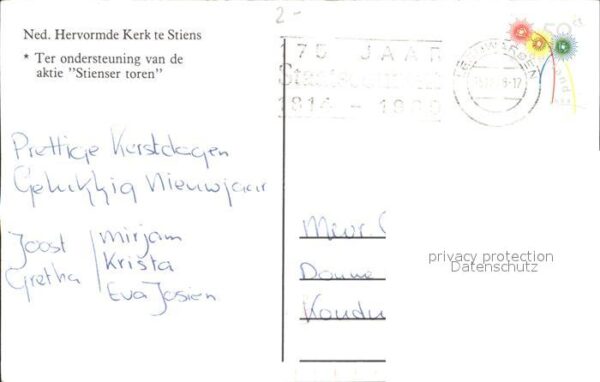 2-
Ned. Hervormde Kerk te Stiens
* Ter ondersteuning van de
aktie "Stienser toren"
175 JAAR
1814 - 1989
LEEUWARDEN
50 ct
Prettige Kerstdagen
Gelukkig Nieuwjaar
Joost
Gretha
Mirjam
Krista
Eva Josien
Mevr
privacy protection
Datenschutz